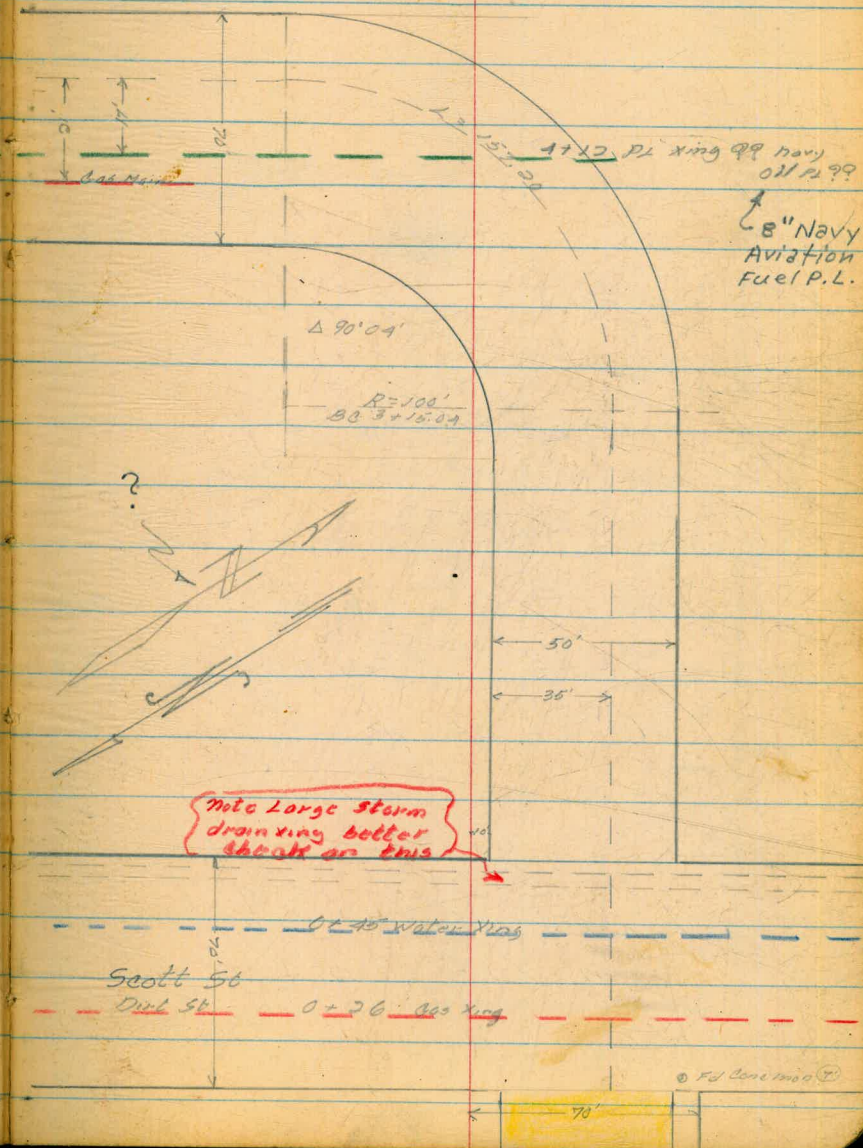 70'
4+12 PL xing ?? Navy
Oil PL ??
8" Navy
Aviation
Fuel P.L.
Gas Main
Δ 90°04'
R=100'
BC 3+15.04
?
N
50'
35'
Note Large Storm
drain xing better
check on this
10'
0+45 Water Xing
70'
Scott St
Dirt St
0+26 Gas Xing
Fd Conc mon
70'